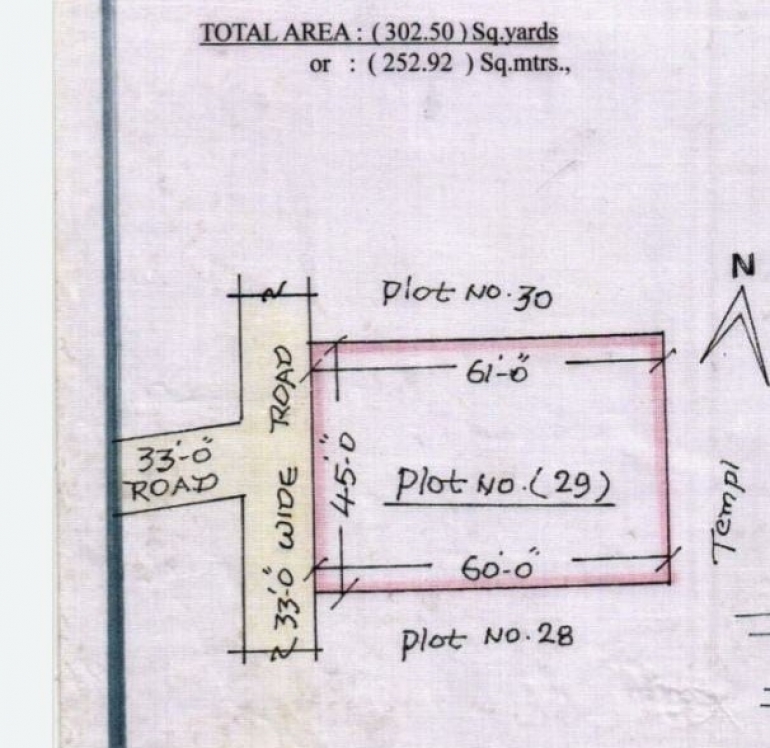 TOTAL AREA : ( 302.50 ) Sq.yards
or : ( 252.92 ) Sq.mtrs.,
N
Plot No. 30
61'-0"
33'-0" WIDE ROAD
33'-0"
ROAD
45'-0"
Plot No. (29)
Templ
60'-0"
Plot No. 28